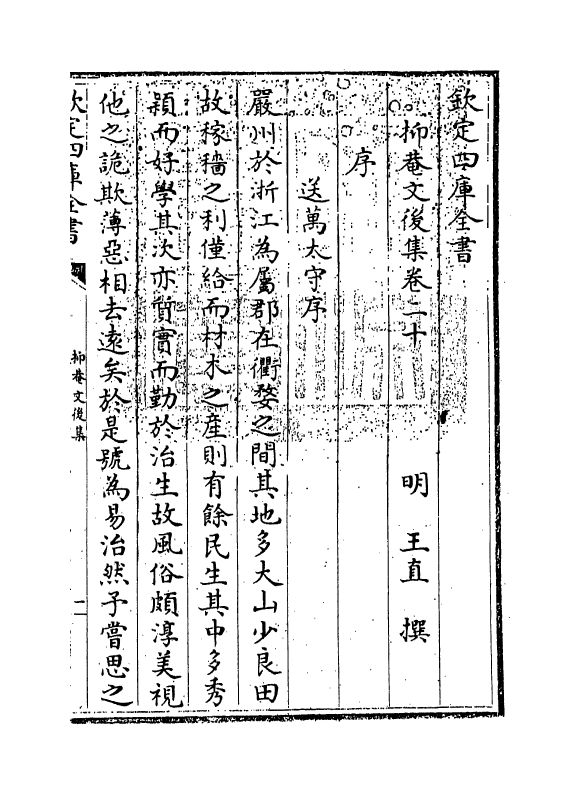 欽定四庫全書
抑菴文後集卷二十　明　王直　撰
序
送萬太守序
嚴州於浙江為屬郡在衢婺之間其地多大山少良田
故稼穡之利僅給而材木之產則有餘民生其中多秀
穎而好學其次亦質實而勤於治生故風俗頗淳美視
他之詭欺薄惡相去遠矣於是號為易治然予嘗思之
欽定四庫全書
抑菴文後集